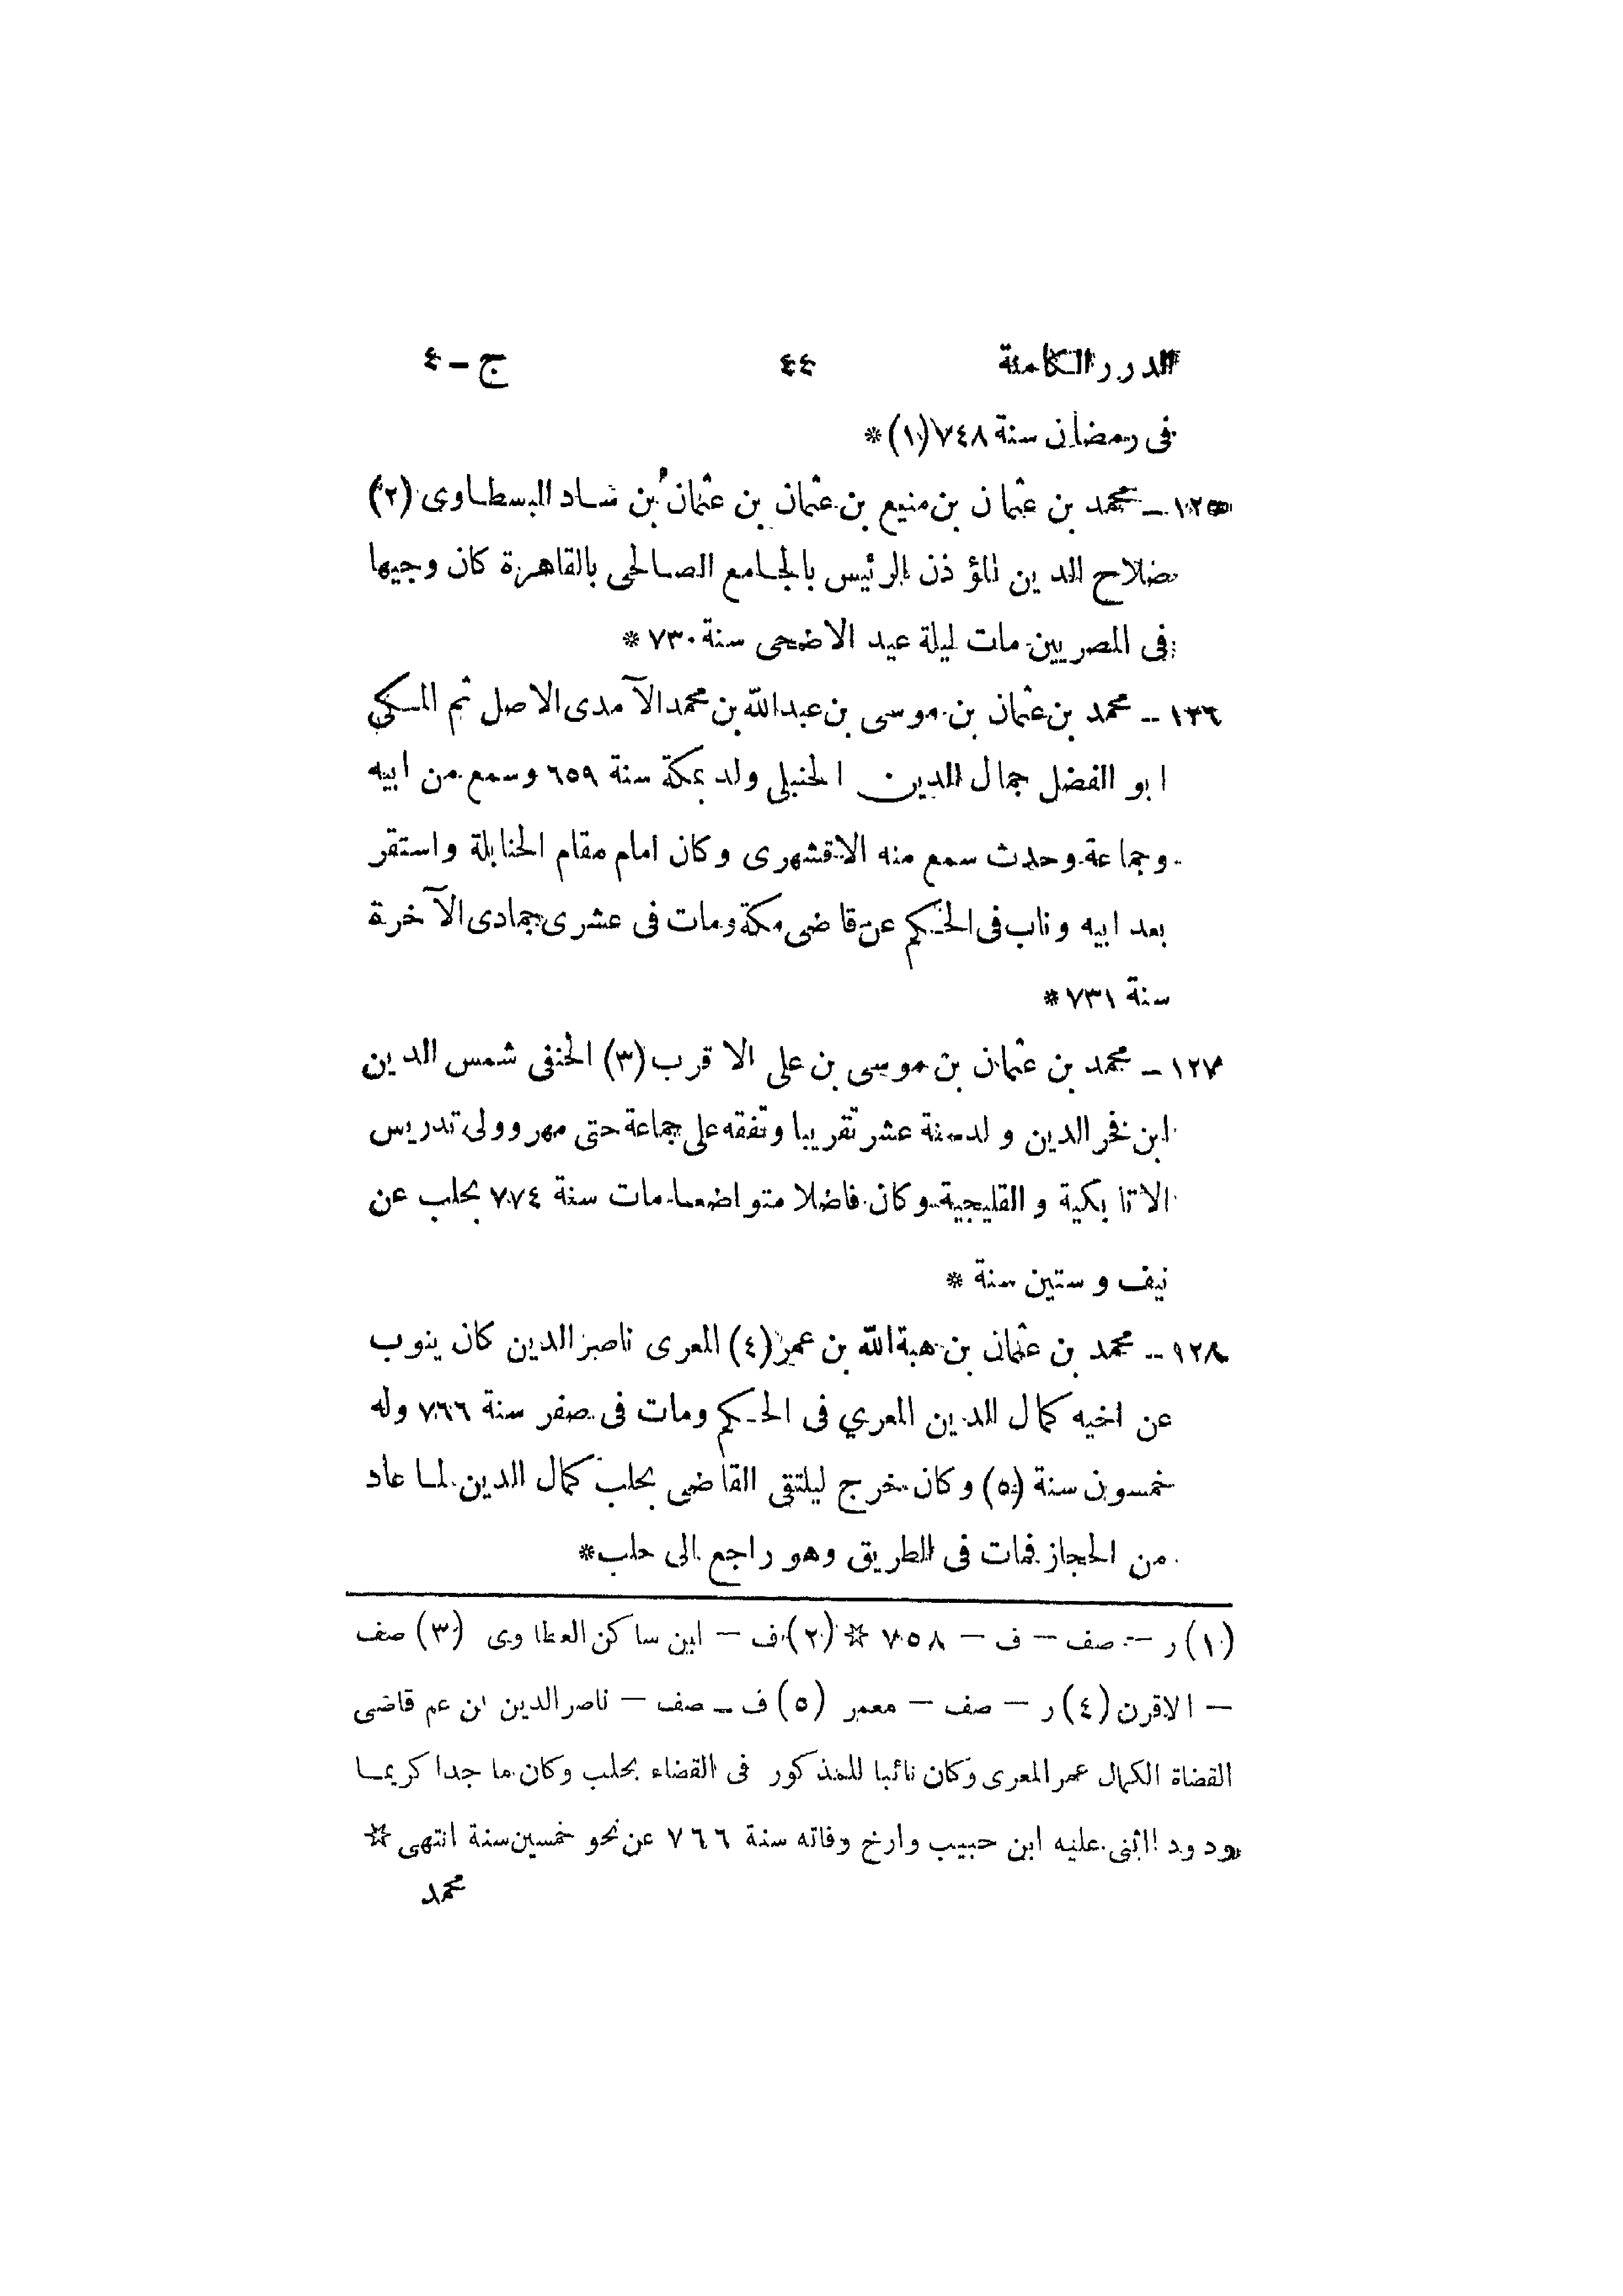 الدرر الكامنة ٤٤ ج – ٤
فى رمضان سنة ٧٤٨ (١) *
١٢٥ – محمد بن عثمان بن منيع بن عثمان بن عثمان بن شاد البسطاوى (٢)
صلاح الدين المؤذن الرئيس بالجامع الصالحى بالقاهرة كان وجيها
فى المصريين مات ليلة عيد الاضحى سنة ٧٣٠ *
١٢٦ – محمد بن عثمان بن موسى بن عبد الله بن محمد الآمدى الاصل ثم المكي
ابو الفضل جمال الدين الحنبلى ولد بمكة سنة ٦٥٩ وسمع من ابيه
وجماعة وحدث سمع منه الاقشهرى وكان امام مقام الحنابلة واستقر
بعد ابيه وناب فى الحكم عن قاضى مكة ومات فى عشرى جمادى الآخرة
سنة ٧٣١ *
١٢٧ – محمد بن عثمان بن موسى بن على الاقرب (٣) الحنفى شمس الدين
ابن فخر الدين ولد سنة عشر تقريبا وتفقه على جماعة حتى مهر وولى تدريس
الاتابكية والقليجية وكان فاضلا متواضعا مات سنة ٧٧٤ بحلب عن
نيف وستين سنة *
١٢٨ – محمد بن عثمان بن هبة الله بن عمر (٤) المعرى ناصر الدين كان ينوب
عن اخيه كمال الدين المعري فى الحكم ومات فى صفر سنة ٧٦٦ وله
خمسون سنة (٥) وكان خرج ليلتقى القاضى بحلب كمال الدين لما عاد
من الحجاز فمات فى الطريق وهو راجع الى حلب *
(١) ر – صف – ف – ٧٥٨ ☆ (٢) ف – ابن ساكن العطاوى (٣) صف
– الاقرن (٤) ر – صف – معمر (٥) ف – صف – ناصر الدين ابن عم قاضى
القضاة الكمال عمر المعرى وكان نائبا للمذكور فى القضاء بحلب وكان ماجدا كريما
ودودا اثنى عليه ابن حبيب وارخ وفاته سنة ٧٦٦ عن نحو خمسين سنة انتهى ☆
محمد